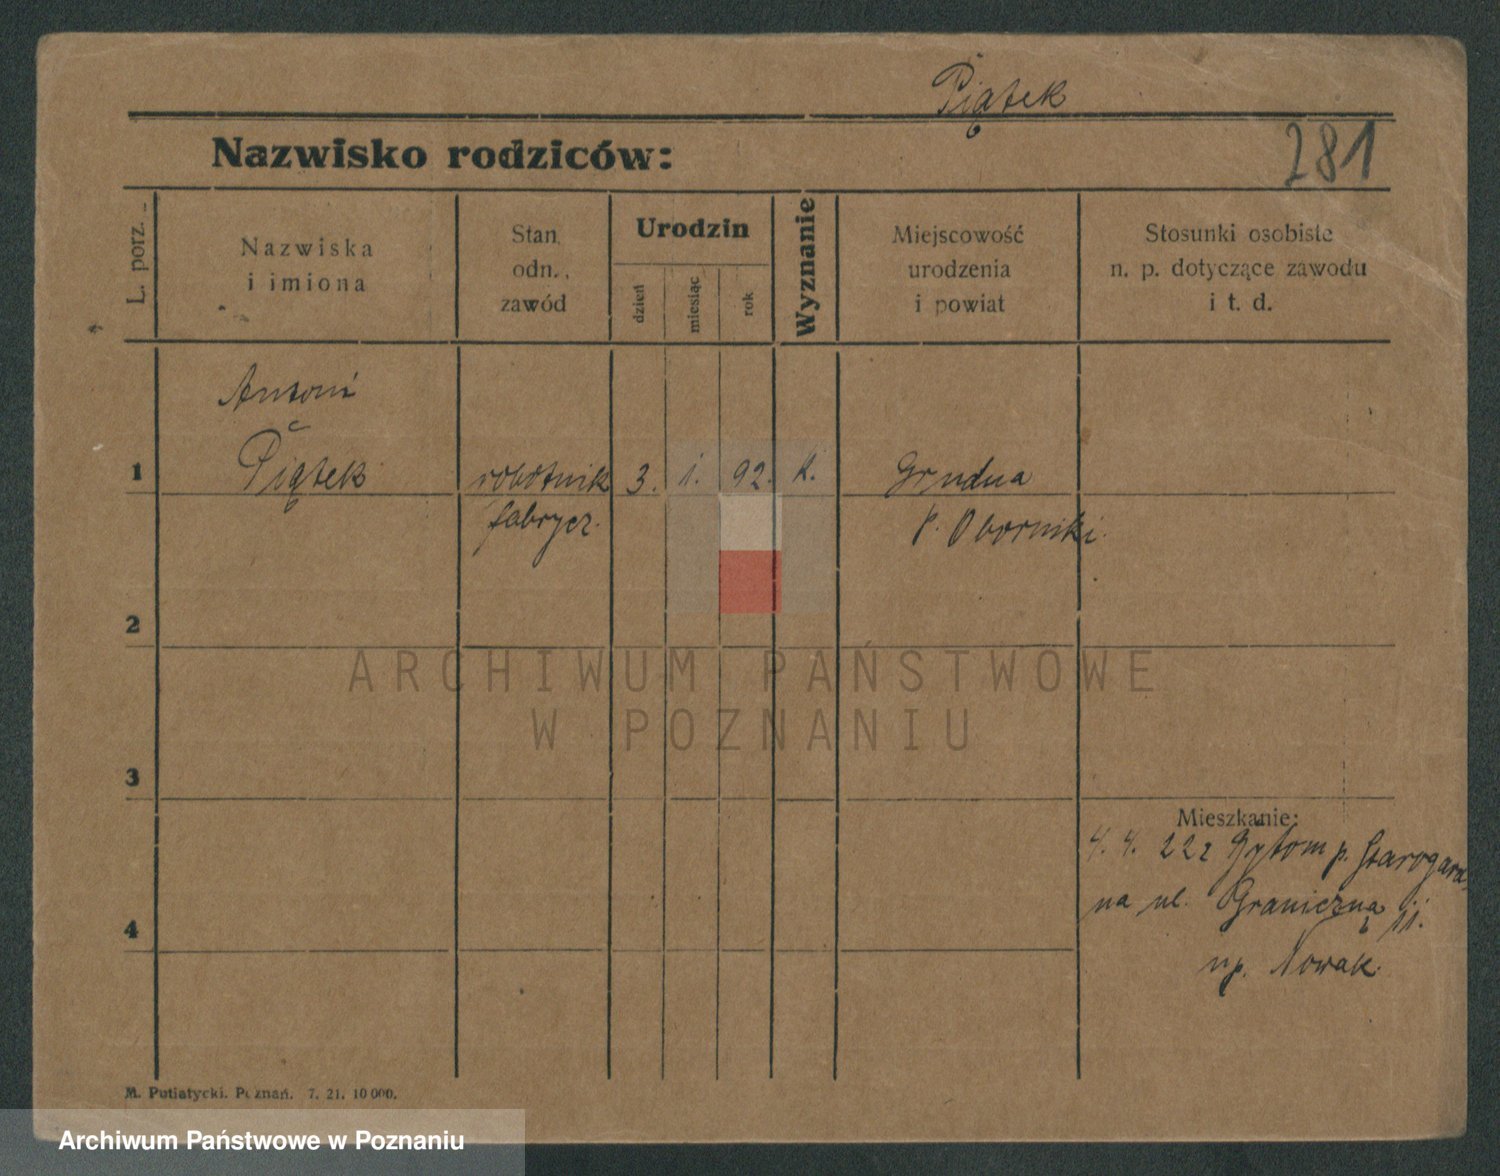 Piątek
Nazwisko rodziców:
281
L. porz.
Nazwiska
i imiona
Stan,
odn.,
zawód
Urodzin
dzień
miesiąc
rok
Wyznanie
Miejscowość
urodzenia
i powiat
Stosunki osobiste
n. p. dotyczące zawodu
i t. d.
Antoni
1 Piątek robotnik 3. 1. 92. k. Grudna
fabrycz. p. Oborniki
2
ARCHIWUM PAŃSTWOWE
W POZNANIU
3
Mieszkanie:
4. 4. 22 z p. Starogard
na ul. Graniczną 11.
4
up. Nowak
M. Putiatycki. Poznań. 7. 21. 10 000.
Archiwum Państwowe w Poznaniu